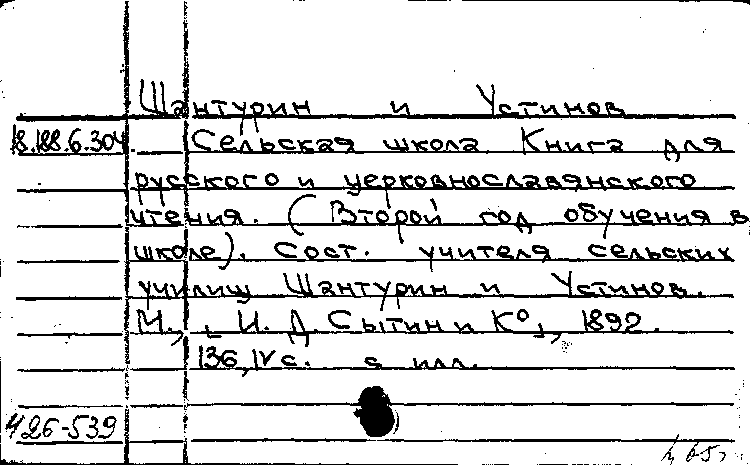 Шантурин и Устинов
18.188.6.304. Сельская школа. Книга для
русского и церковнославянского
чтения. (Второй год обучения в
школе). Сост. учителя сельских
училищ Шантурин и Устинов.
М., [И. Д. Сытин и К°], 1892.
136, IV с. с илл.
426-539